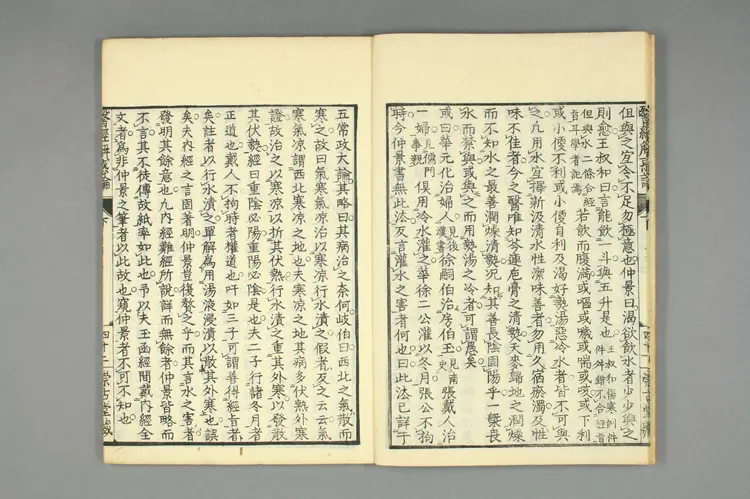 但與之宜令不足勿極意也仲景曰渴欲飲水者少少與之
則愈王叔和曰言能飲一斗與五升是也
若飲而腹滿或嘔或噦或喘或咳或下利
或小便不利或小便自利及渴好熱湯惡冷水者皆不可與
之九用水宜擇新汲清水性潔味善者勿用久宿瘀濁及性
味不佳者今之醫唯知芩連巵膏之清熱天麥歸地之潤燥
而不知水之最善潤燥清熱況知其善長陰固陽乎一槩畏
水而禁與或與之而用熱湯之冷者可謂愚矣
或曰華元化治婦人徐嗣伯治房伯玉張戴人治
一婦俱用冷水灌之華徐二公灌以冬月張公不拘
時今仲景書無此法反言灌水之害者何也曰此法已詳于
五常政大論其略曰其病治之奈何歧伯曰西北之氣散而
寒之故曰氣寒氣涼治以寒涼行水漬之假者反之云云氣
寒氣涼謂西北寒涼之地也夫寒涼之地其病多伏熱外寒
證故治之以寒涼以折其伏熱行水漬之重其外寒以發散
其伏熱經曰重陰必陽重陽必陰是也夫二子行諸冬月者
正道也戴人不拘時者權道也吁如三子可謂善得經旨者
矣註者以行水漬之單解爲用湯液浸漬以散其外寒也誤
矣夫內經之言固著明仲景豈復贅之乎而其言水之害者
發明其餘意也九內經難經所說詳而無餘者仲景皆略而
不言其不徒傳故紙率如此也予以夫玉函經間戴內經全
文者爲非仲景之筆者以此故也窺仲景者不可不知也